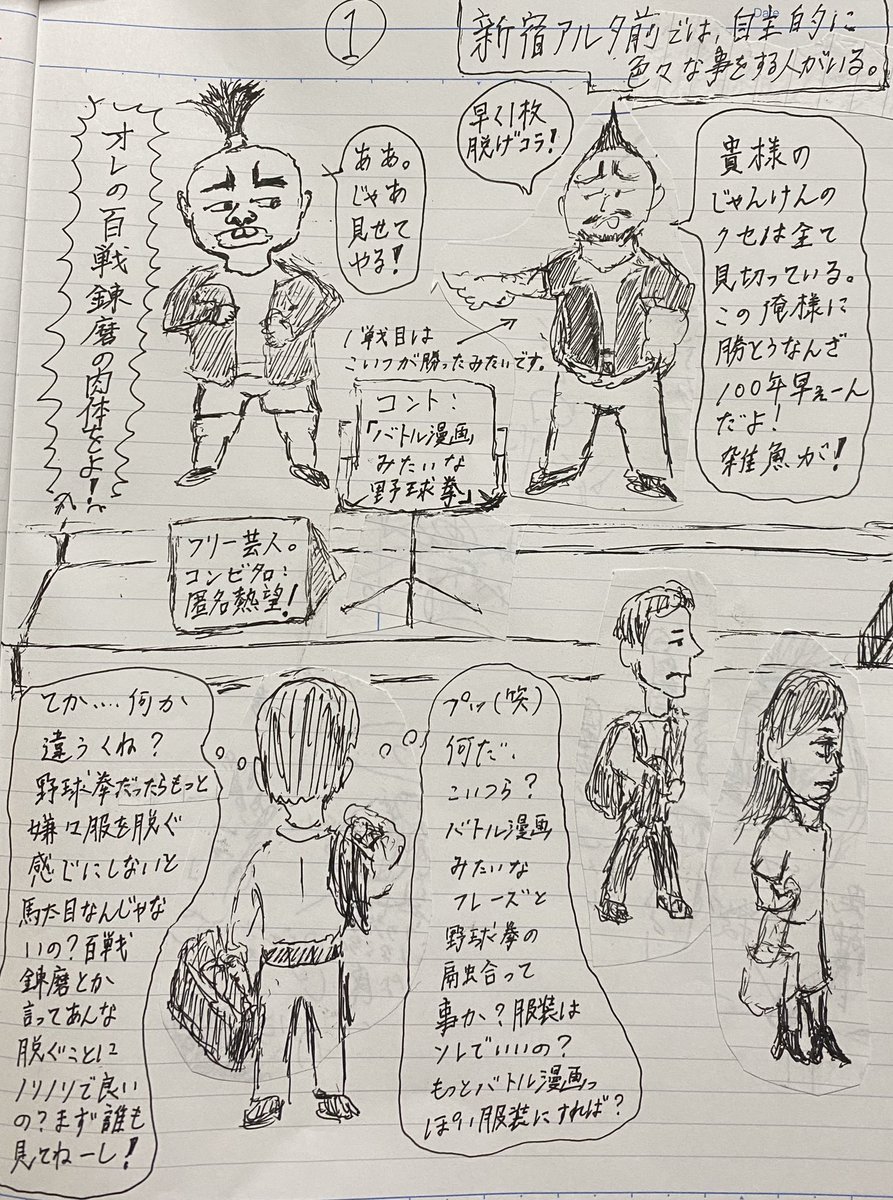 ①
Date
新宿アルタ前では、自主的に
色々な事をする人がいる。
早く1枚
脱げコラ!
貴様の
じゃんけんの
クセは全て
見切っている。
この俺様に
勝とうなんざ
100年早ぇーん
だよ!
雑魚が!
ああ。
じゃあ
見せて
やる!
オレの百戦錬磨の肉体をよ!
1戦目は
こいつが勝ったみたいです。
コント:
「バトル漫画」
みたいな
野球拳」
フリー芸人。
コンビ名:
匿名熱望!
プッ(笑)
何だ、
こいつら?
バトル漫画
みたいな
フレーズと
野球拳の
融合って
事か?服装は
ソレでいいの?
もっとバトル漫画っ
ぽい服装にすれば?
てか....何か
違うくね?
野球拳だったらもっと
嫌々服を脱ぐ
感じにしないと
駄目なんじゃな
いの?百戦
錬磨とか
言ってあんな
脱ぐことに
ノリノリで良い
の?まず誰も
見てねーし!